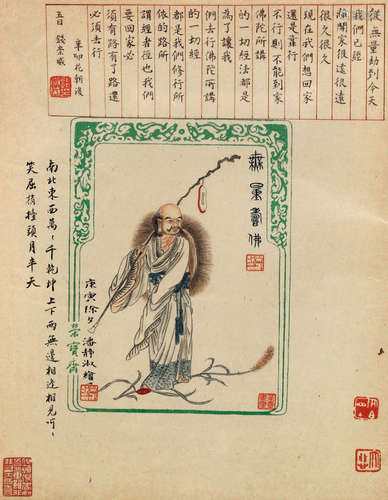 從無量劫到今天
我們已經
離開家很遠很遠
很久很久
現在我們想回家
還是靠行
不行則不能到家
佛陀所講
的一切經法都是
為了讓我
們去行佛陀所講
的一切經
都是我們修行所
依的路所
謂經者徑也我們
要回家必
須有路有了路還
必須去行
辛卯花朝後
五日 錢崇威
無量壽佛
庚寅除夕
潘靜淑繪
榮寶齋
南北東西萬々千乾坤上下兩無邊相逢相見呵々
笑屈指擡頭月半天